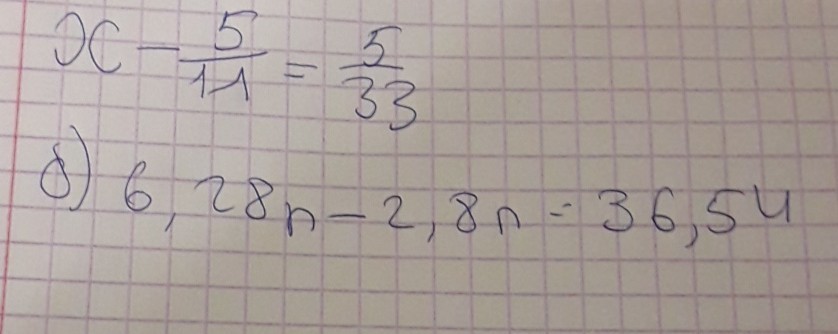 x - 5/11 = 5/33
б) 6,28n - 2,8n = 36,54